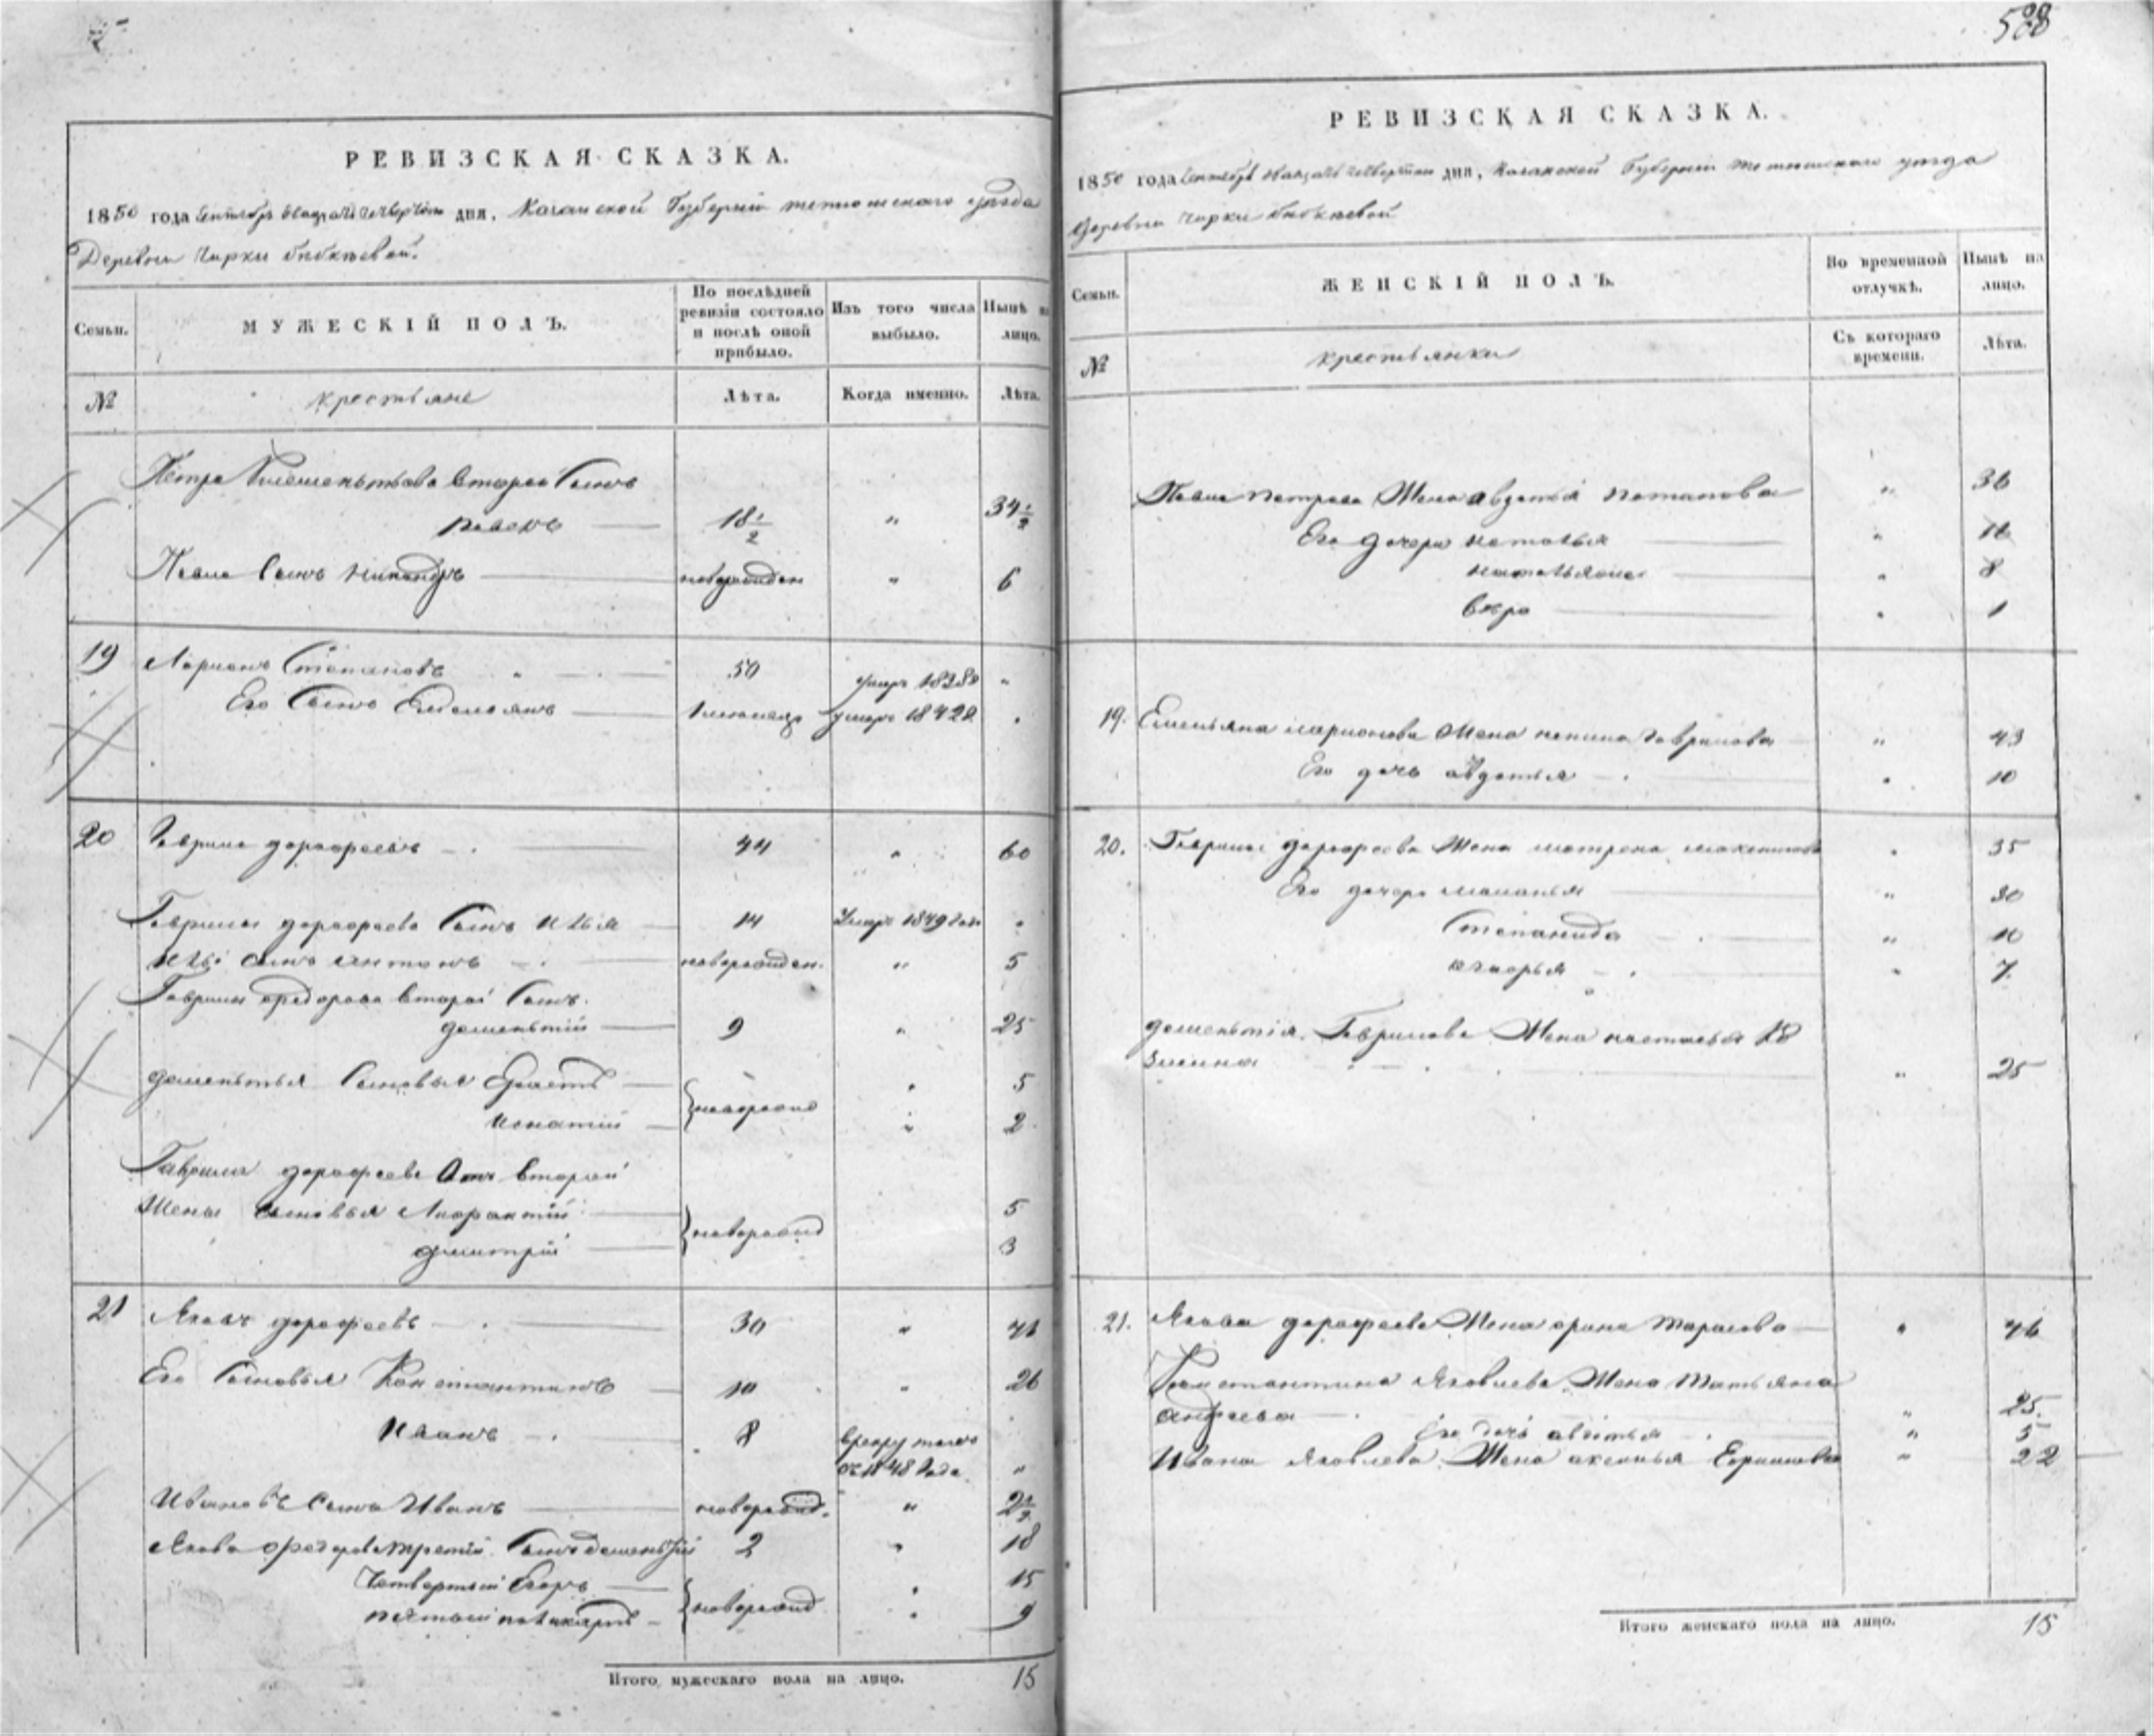 588
РЕВИЗСКАЯ СКАЗКА.
1850 года Сентября двадцать четвертого дня, Казанской Губернии тетюшскаго уезда
Деревни Чирки бибкѣевой.
Семьи.
МУЖЕСКІЙ ПОЛЪ.
По послѣдней ревизіи состояло и послѣ оной прибыло.
Изъ того числа выбыло.
Нынѣ на лицо.
№
крестьяне
Лѣта.
Когда именно.
Лѣта.
Петра второй Сынъ
Павелъ 18 1/2 " 34 1/2
Павла Сынъ Никандръ новорожден " 6
19 Ларионъ Степановъ " 50 умеръ 1838 "
Его Сынъ Емельянъ умеръ 1842 "
20 Гаврила дорофеевъ 44 " 60
Гаврилы дорофеева Сынъ Илья 14 Умеръ 1849 года "
Ильи сынъ антонъ новорожден. " 5
Гаврилы федорова второй Сынъ
дементий 9 " 25
дементья Сыновья Ерастъ 5
Игнатий } новорожд " 2
Гаврилы дорофеева Отъ второй
Жены сыновья 5
дмитрий } новорожд 3
21 Яковъ дорофеевъ 30 " 46
Его Сыновья Константинъ 10 " 26
Иванъ 8 врекруты
съ 1848 года "
Ивановъ Сынъ Иванъ новорожд. " 2 1/2
Якова федорова третий Сынъ дементий 2 " 18
Четвертый Егоръ 15
пятый поликарпъ } новорожд " 9
Итого мужескаго пола на лицо. 15
РЕВИЗСКАЯ СКАЗКА.
1850 года Сентября двадцать четвертого дня, Казанской Губернии тетюшскаго уезда
Деревни Чирки бибкѣевой
Семьи.
ЖЕНСКІЙ ПОЛЪ.
Во временной отлучкѣ.
Нынѣ на лицо.
№
крестьянки
Съ котораго времени.
Лѣта.
Павла петрова Жена авдотья потапова " 36
Его дочери наталья "
" 8
вѣра " 1
19. Емельяна ларионова Жена Гаврилова " 43
Его дочь авдотья " 10
20. Гаврилы дорофеева Жена матрена " 35
Его дочери маланья "
Степанида " 10
" 7
дементія Гаврилова Жена настасья
" 25
21. Якова дорофеева Жена арина тарасова " 46
Константина Яковлева Жена татьяна
андреева " 25.
Его дочь авдотья " 5
Ивана Яковлева Жена аксинья " 22
Итого женскаго пола на лицо. 15